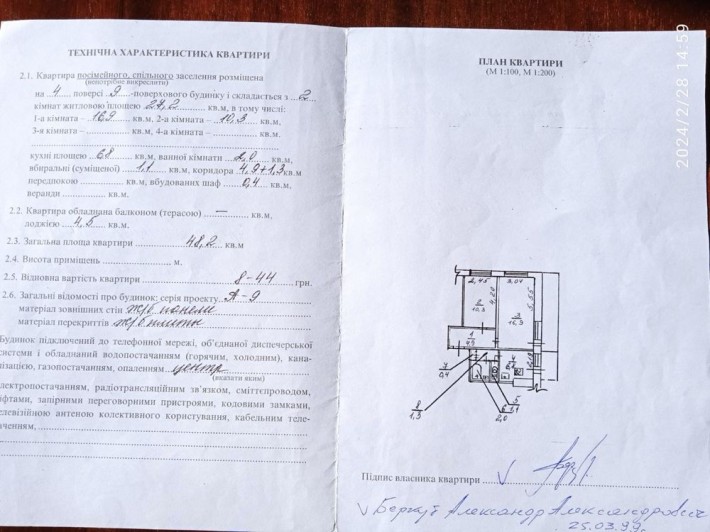 ТЕХНІЧНА ХАРАКТЕРИСТИКА КВАРТИРИ
2.1. Квартира посімейного, спільного заселення розміщена
(непотрібне викреслити)
на 4 поверсі 9 -поверхового будинку і складається з 2
кімнат житловою площею 27,2 кв.м, в тому числі:
1-а кімната – 16,9 кв.м, 2-а кімната – 10,3 кв.м,
3-я кімната – кв.м, 4-а кімната –
кухні площею 6,8 кв.м, ванної кімнати 2,0 кв.м,
вбиральні (суміщеної) 1,1 кв.м, коридора 4,9+1,3 кв.м
передпокою кв.м, вбудованих шаф 0,4 кв.м,
веранди кв.м.
2.2. Квартира обладнана балконом (терасою) — кв.м,
лоджією 4,5 кв.м.
2.3. Загальна площа квартири 48,2 кв.м
2.4. Висота приміщень м.
2.5. Відновна вартість квартири 8-44 грн.
2.6. Загальні відомості про будинок: серія проекту А-9
матеріал зовнішніх стін ж/б панели
матеріал перекриттів ж/б плиты
Будинок підключений до телефонної мережі, об'єднаної диспетчерської
системи і обладнаний водопостачанням (горячим, холодним), кана-
лізацією, газопостачанням, опаленням центр.
(вказати яким)
електропостачанням, радіотрансляційним зв'язком, сміттєпроводом,
ліфтами, запірними переговорними пристроями, кодовими замками,
телевізійною антеною колективного користування, кабельним теле-
аченням,
ПЛАН КВАРТИРИ
(М 1:100, М 1:200)
2,45
3,04
4,20
5,55
2
10,3
3
16,9
1
4,9
7
0,4
4
8
1,3
5
1,1
6
2,0
Підпис власника квартири
Беркут Александр Александрович
25.03.99г.
2024/2/28 14:59